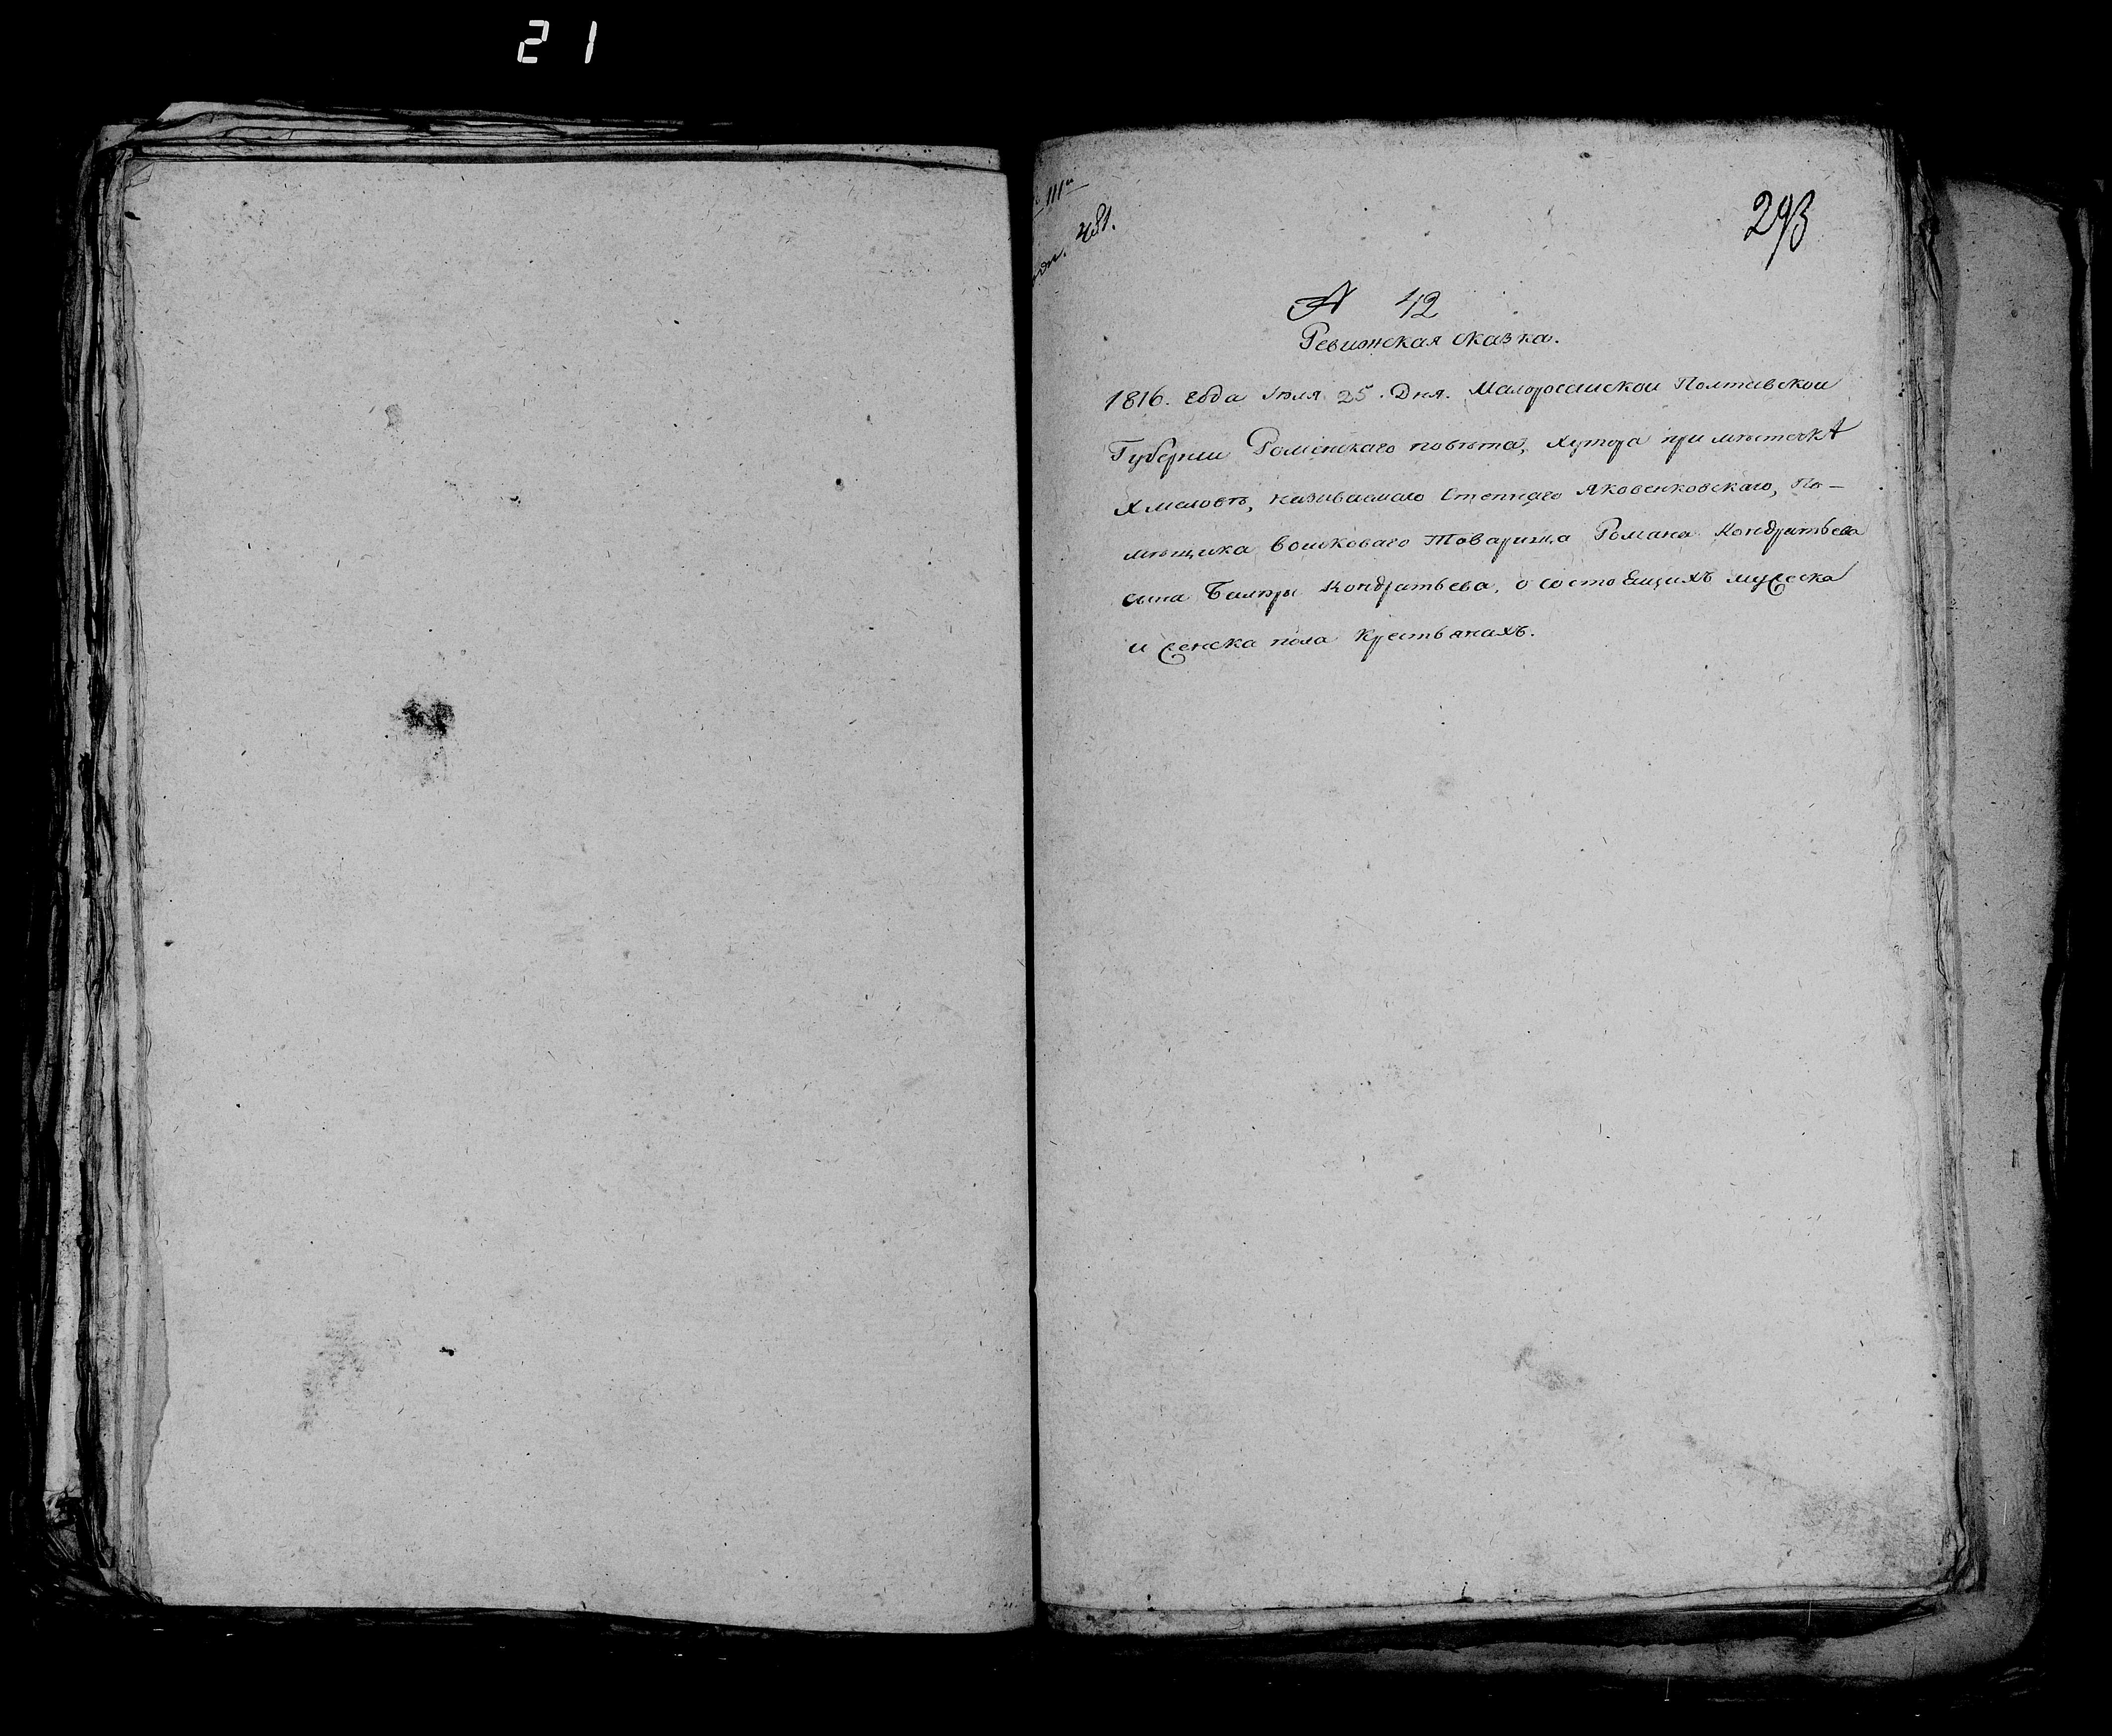 21
111й
481.
293
№ 42
Ревижская сказка.
1816. года Июля 25. Дня. Малоросииской Полтавской
Губернии Роменскаго повѣта, хутора при мѣстечкѣ
Хмеловѣ, называемаго Степнаго Яковенковскаго, По–
мѣщика воисковаго Товарища Романа Кондратьева
сына Кондратьева, о состоящихъ мужеска
и женска пола крестьянахъ.